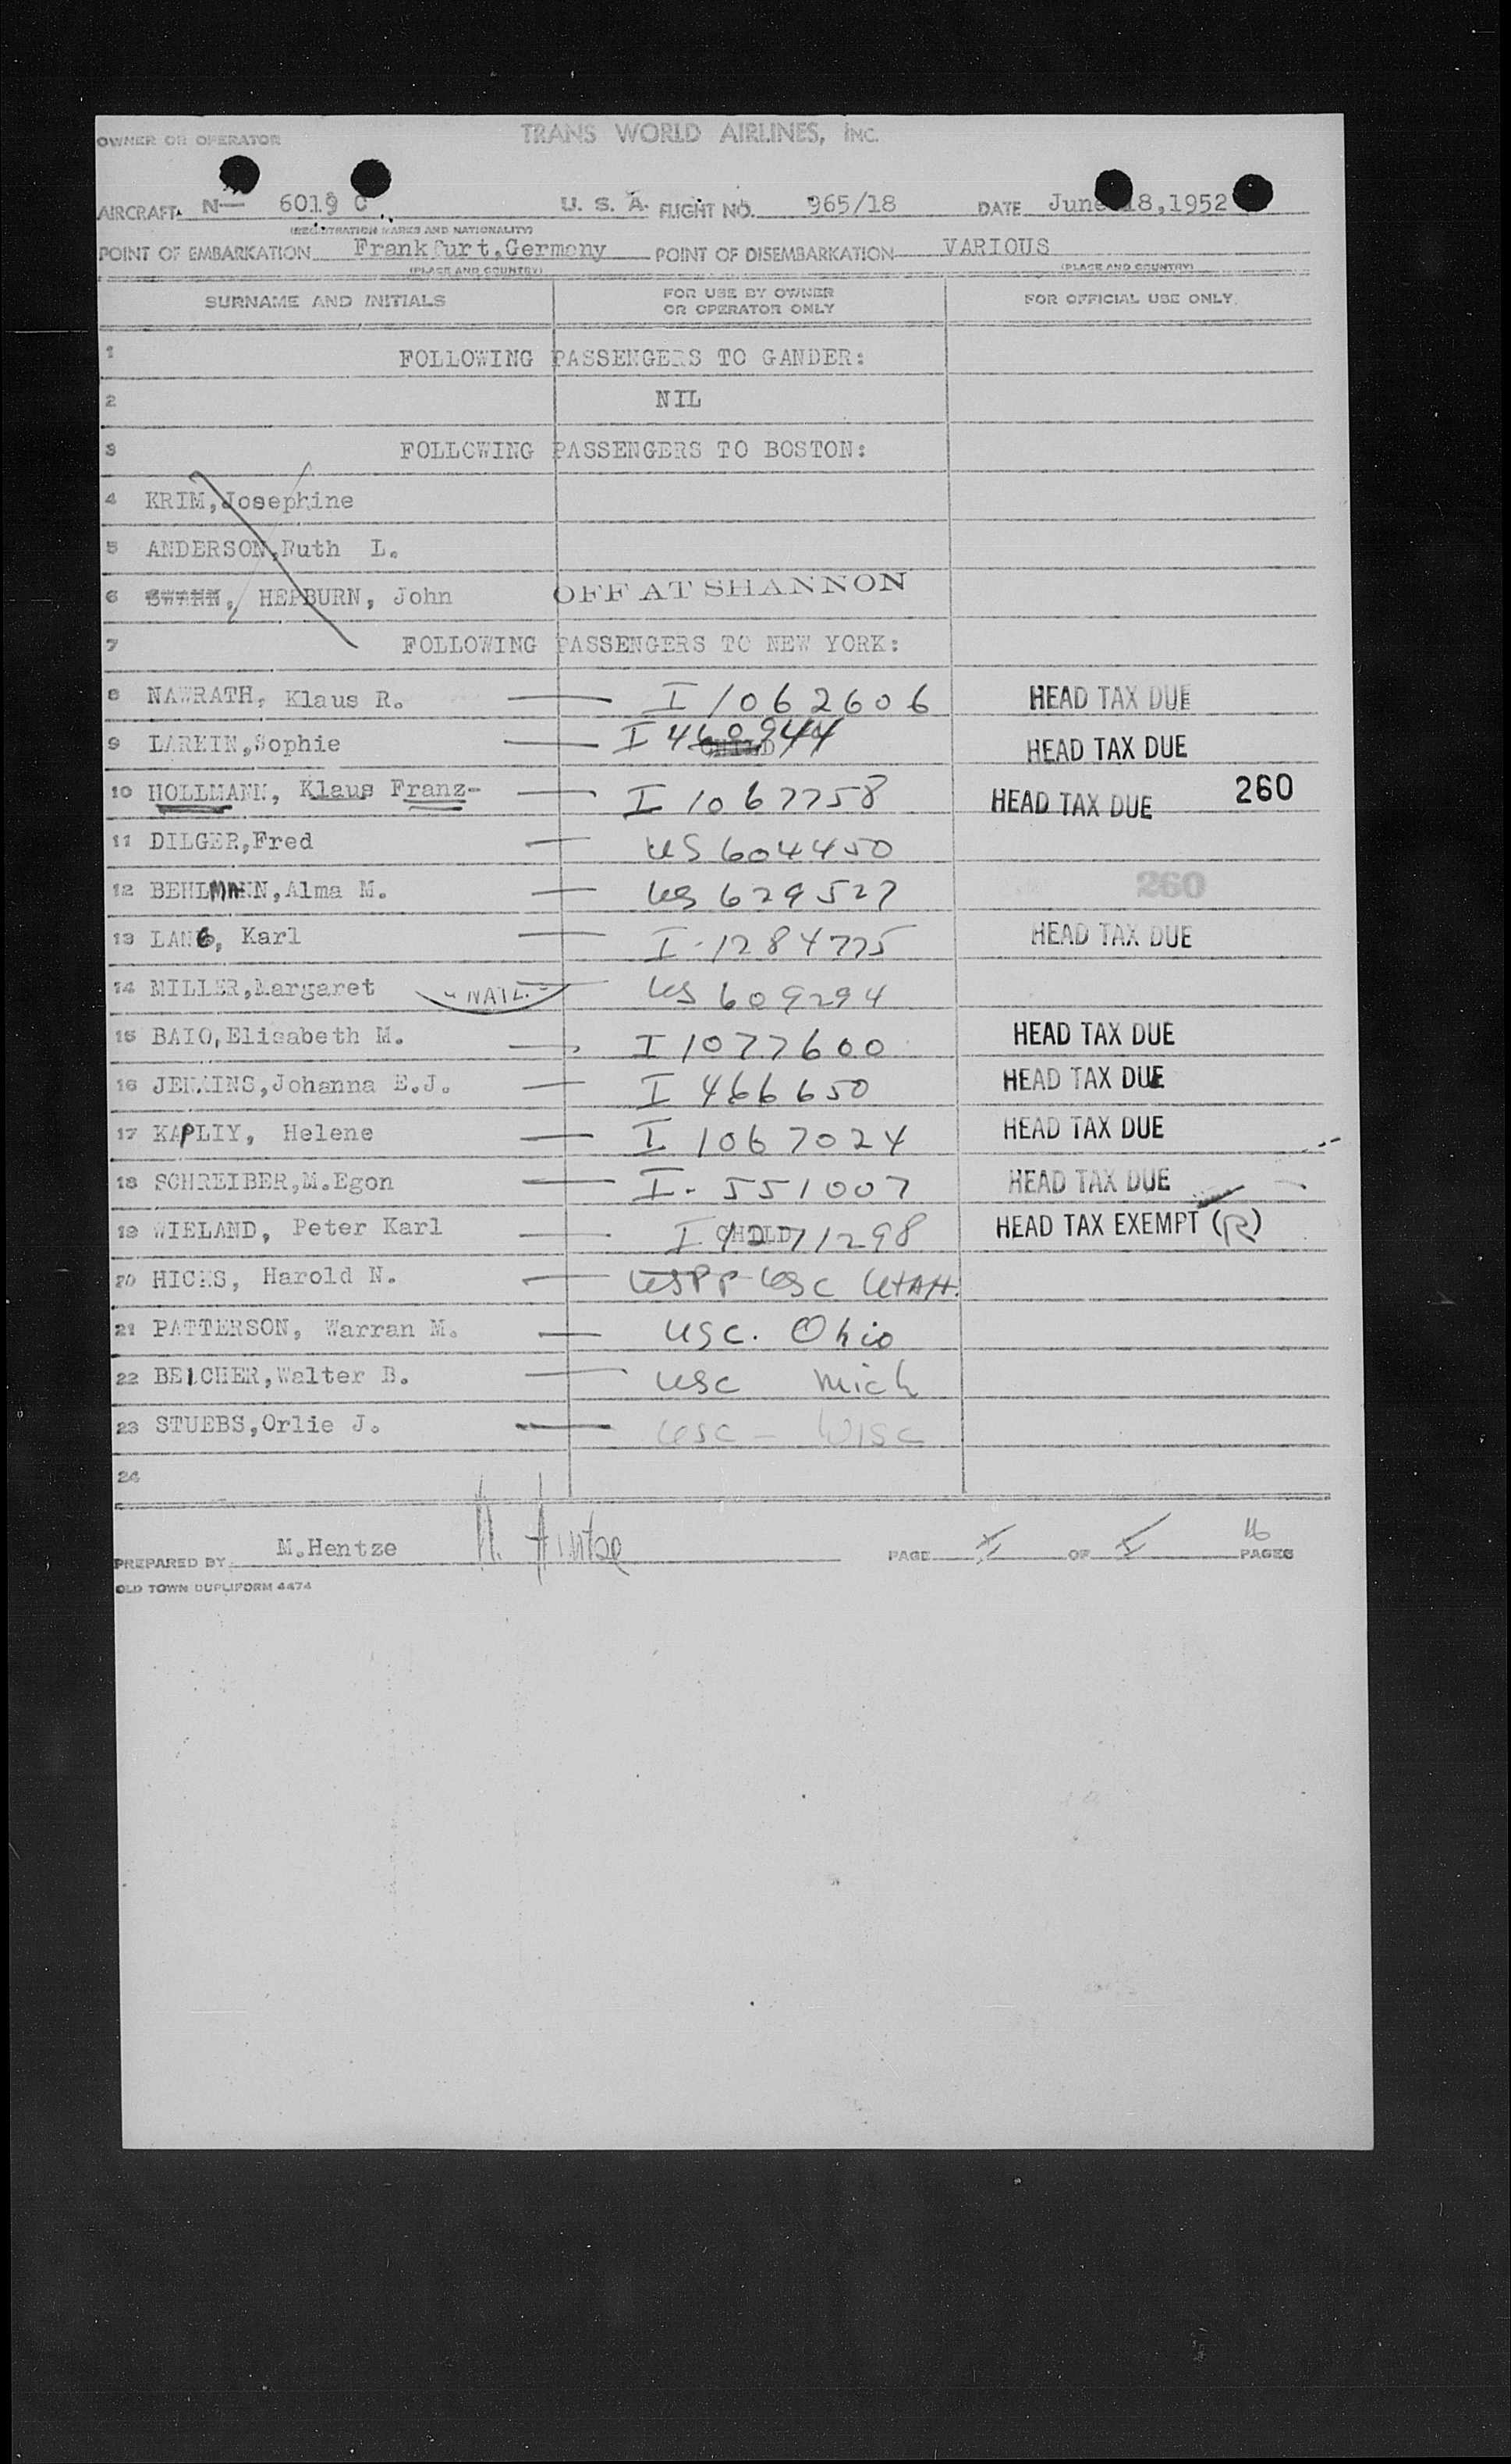 OWNER OR OPERATOR TRANS WORLD AIRLINES, INC.
AIRCRAFT N— 6019 C U. S. A. FLIGHT NO. 965/18 DATE June 18,1952
(REGISTRATION MARKS AND NATIONALITY)
POINT OF EMBARKATION Frankfurt,Germany POINT OF DISEMBARKATION VARIOUS
(PLACE AND COUNTRY) (PLACE AND COUNTRY)
SURNAME AND INITIALS FOR USE BY OWNER OR OPERATOR ONLY FOR OFFICIAL USE ONLY
1 FOLLOWING PASSENGERS TO GANDER:
2 NIL
3 FOLLOWING PASSENGERS TO BOSTON:
4 KRIM,Josephine
5 ANDERSON,Ruth L.
6 HEPBURN, John OFF AT SHANNON
7 FOLLOWING PASSENGERS TO NEW YORK:
8 NAWRATH, Klaus R. — I 1062606 HEAD TAX DUE
9 LARKIN,Sophie — I 460944 CHILD HEAD TAX DUE
10 HOLLMANN, Klaus Franz- — I 1067758 HEAD TAX DUE 260
11 DILGER,Fred — US 604450
12 BEHLMANN,Alma M. — US 629527 260
13 LANG, Karl — I-1284775 HEAD TAX DUE
14 MILLER,Margaret "NATZ." — US 609294
15 BAIO,Elisabeth M. — I 1077600 HEAD TAX DUE
16 JENKINS,Johanna E.J. — I 466650 HEAD TAX DUE
17 KAPLIY, Helene — I 1067024 HEAD TAX DUE
18 SCHREIBER,M.Egon — I- 551007 HEAD TAX DUE
19 WIELAND, Peter Karl — CHILD I 1271298 HEAD TAX EXEMPT (R)
20 HICKS, Harold N. — USPP USC UTAH.
21 PATTERSON, Warran M. — USC. Ohio
22 BELCHER,Walter B. — USC Mich
23 STUEBS,Orlie J. — USC – WISC
24
PREPARED BY M.Hentze M. Hentze PAGE I OF I 16 PAGES
OLD TOWN DUPLIFORM 4474